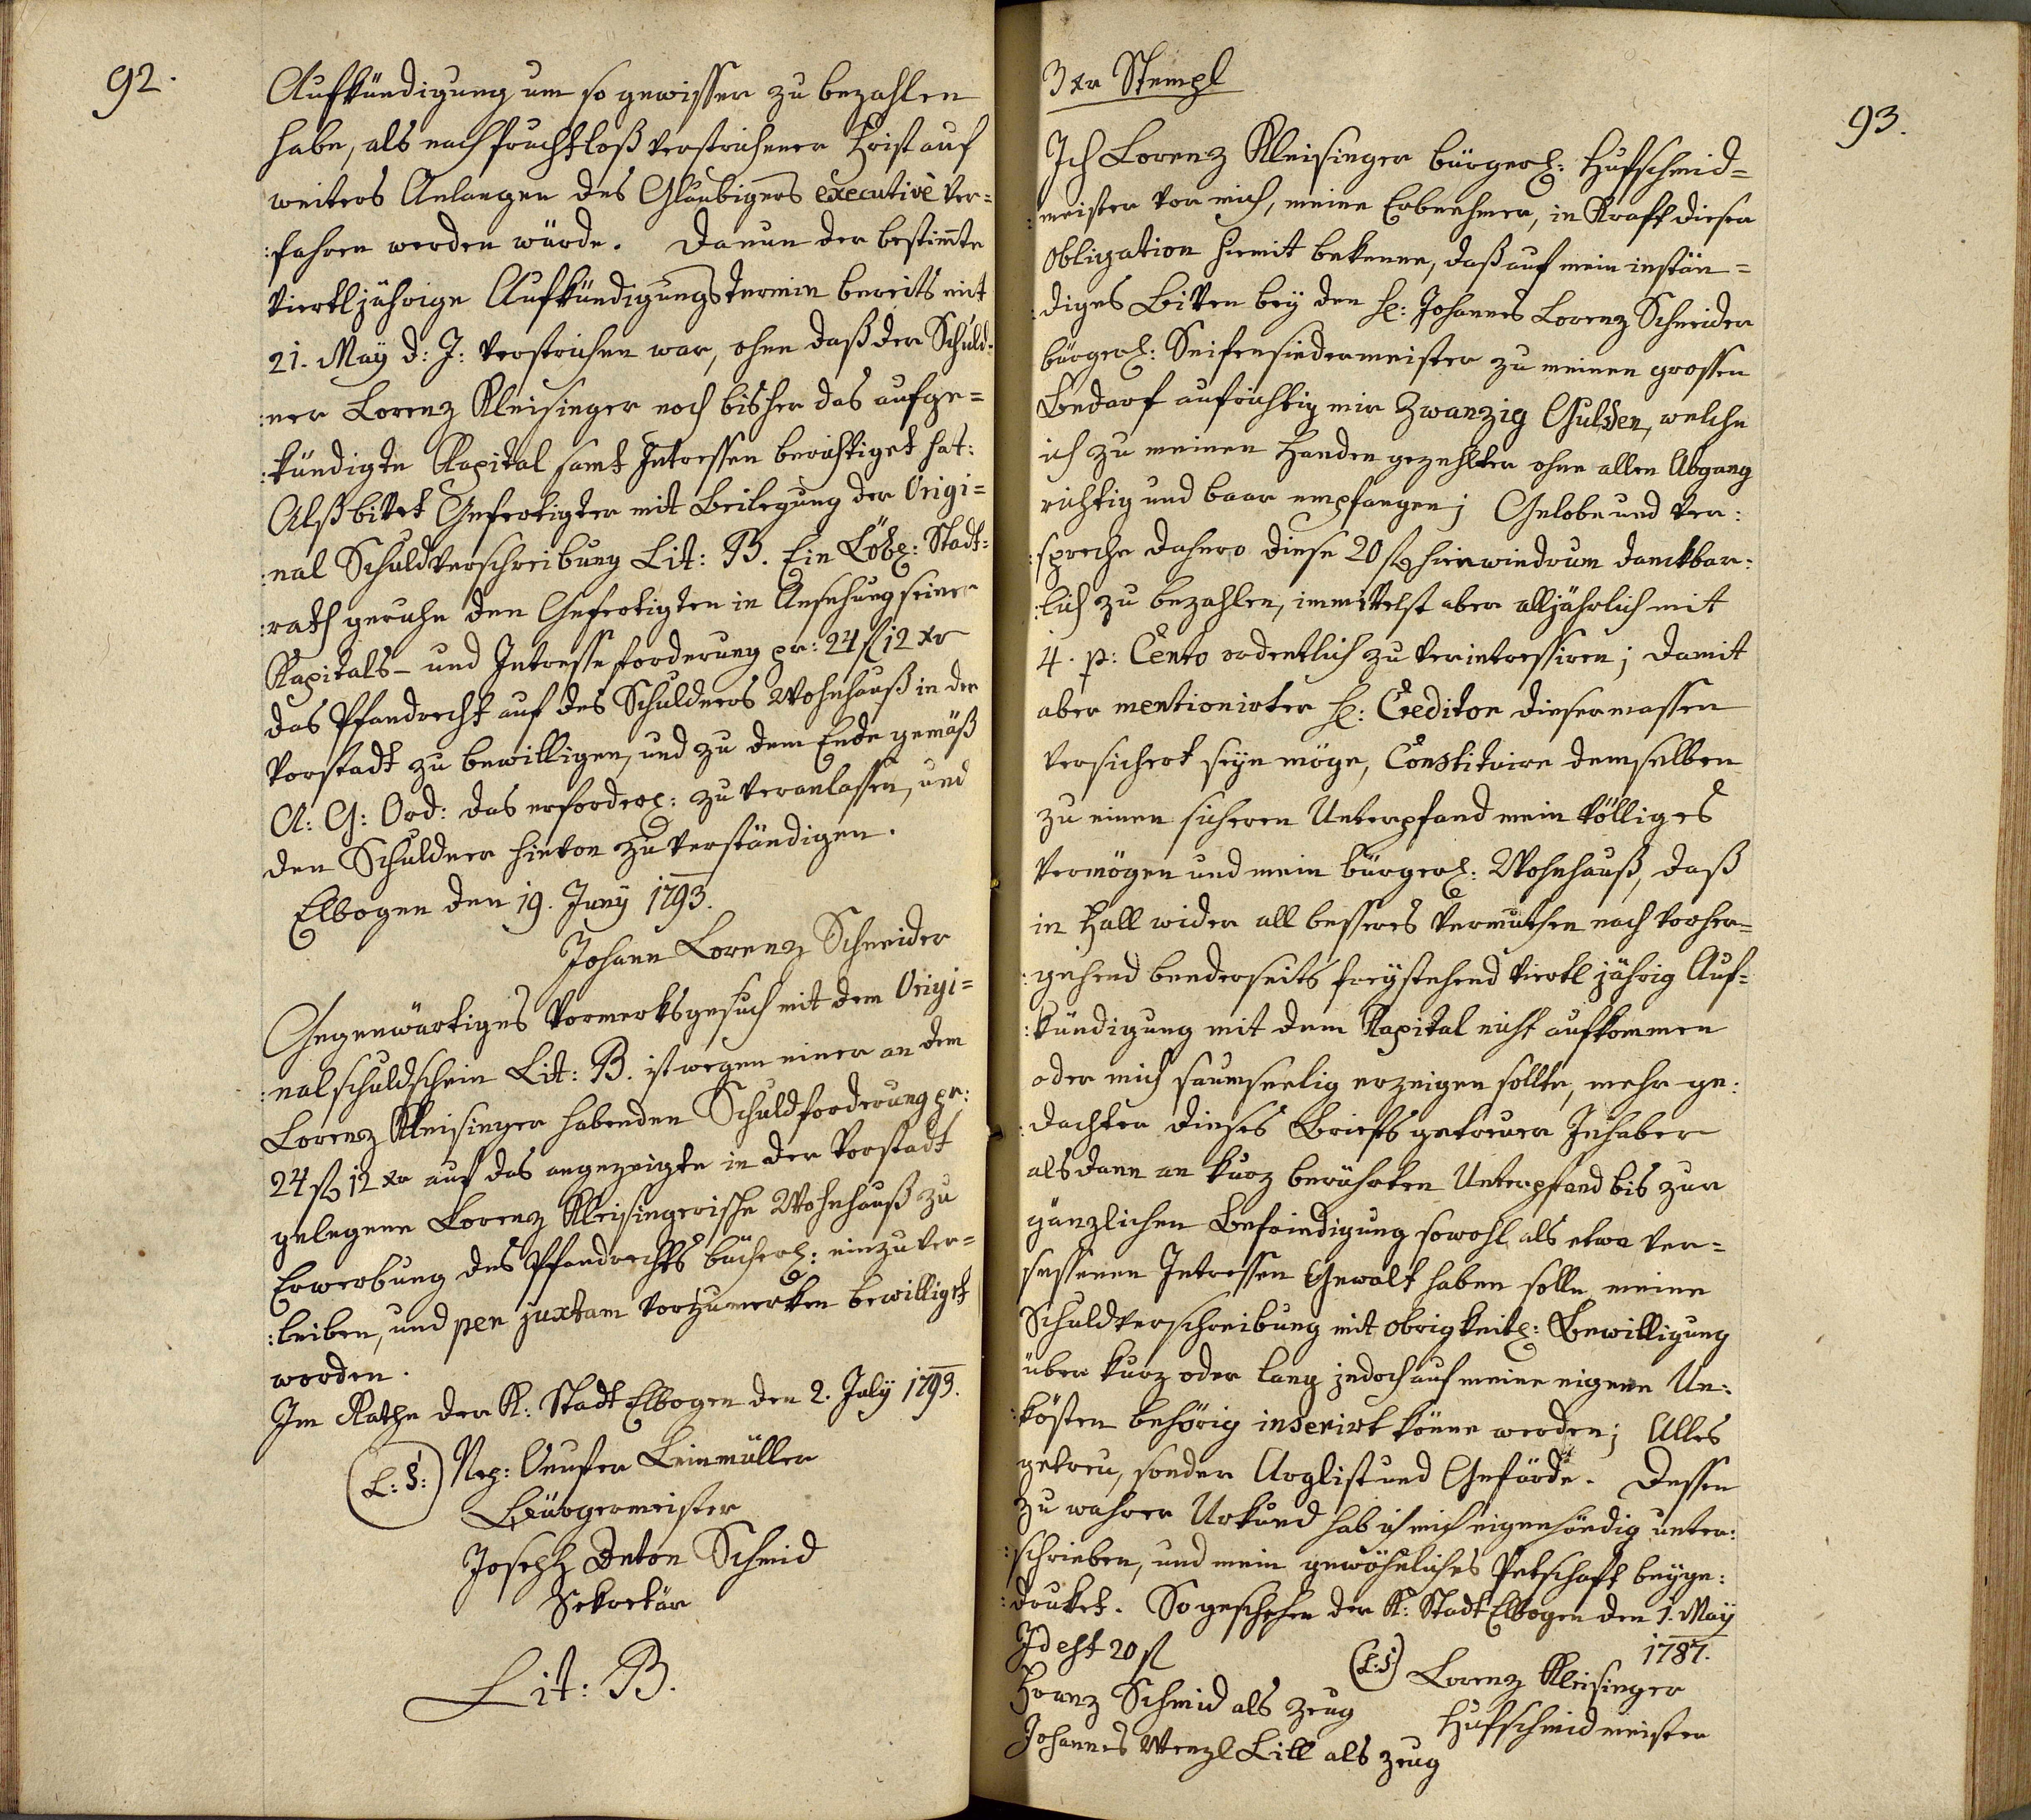 92.
Aufkündigung um so gewisser zu bezahlen
habe, als nach fruchtloß verstrichener Frist auf
weiters Anlangen des Glaubigers executivè ver=
:fahren werden würde. Da nun der bestimte
viertljährige Aufkündigungstermin bereits mit
21. Maÿ d: J: verstrichen war, ohne daß der Schuld=
:ner Lorenz Kleisinger noch bisher das aufge=
:kündigte Kapital samt Intressen berichtiget hat:
Alß bittet Gefertigter mit Beilegung der Origi=
:nal Schuldverschreibung Lit: B. Ein Löbl: Stadt=
:rath geruhe den Gefertigten in Ansehung seiner
Kapitals- und Intresseforderung pr: 24 fl 12 xr
das Pfandrecht auf des Schuldners Wohnhauß in der
Vorstadt zu bewilligen, und zu dem Ende gemäß
A: G: Ord: das erforderl: zu veranlassen, und
den Schuldner hievon zu verständigen.
Elbogen den 19. Junÿ 1793.
Johann Lorenz Schneider
Gegenwärtiges Vormerksgesuch mit dem Origi=
:nalschuldschein Lit: B. ist wegen einer an dem
Lorenz Kleisinger habenden Schuldforderung pr:
24 fl 12 xr auf das angezeigte in der Vorstadt
gelegene Lorenz Kleisingerische Wohnhauß zu
Erwerbung des Pfandrechts bücherl: einzuver=
:leiben, und per juxtam vorzumerken bewilligt
worden.
Im Rathe der K: Stadt Elbogen den 2. Julÿ 1793.
(L: S:) Nep: Leinmüller
Bürgermeister
Joseph Anton Schmid
Sekretär
Lit: B.
3 xr Stempl
93.
Ich Lorenz Kleisinger bürgerl: Hufschmid=
:meister vor mich, meine Erbnehmer, in Kraft dieser
Obligation hiemit bekenne, daß auf mein instän=
:diges Bitten beÿ den H: Johannes Lorenz Schneider
bürgerl: Seifensiedermeister zu meinen grossen
Bedarf aufrichtig mir Zwanzig Gulden, welche
ich zu meinen Handen gezehlter ohne allen Abgang
richtig und baar empfangen; Gelobe und ver:
:spreche dahero diese 20 fl hinwiedrum danckbar:
:lich zu bezahlen, immittelst aber alljährlich mit
4. p: Cento ordentlich zu verintressiren; damit
aber mentionirter H: Creditor diesermassen
versichert seÿn möge, Constituire demselben
zu einen sicheren Unterpfand mein völliges
Vermögen und mein bürgerl: Wohnhauß, daß
in Fall wider all besseres Vermuthen nach vorher=
:gehend beederseits freÿstehend viertl jährig Auf=
:kündigung mit dem Kapital nicht aufkommen
oder mich saumseelig erzeigen sollte, mehr ge:
:dachter dieses Briefs getreuer Inhaber
alsdann an kurz berührten Unterpfand bis zur
gänzlichen Befriedigung sowohl als etwa ver=
sessenen Intressen Gewalt haben solle meine
Schuldverschreibung mit obrigkeitl: Bewilligung
über kurz oder lang jedoch auf meine eigene Un:
:kösten behörig inserirt könne werden; Alles
getreu, sonder Arglist und Gefärde. Dessen
zu wahrer Urkund hab ich mich eigenhändig unter:
:schrieben, und mein gewöhnliches Petschaft beÿge:
:druket. So geschehen der K: Stadt Elbogen den 1. Maÿ
1787.
Id est 20 fl
(L: S:) Lorenz Kleisinger
Hufschmidmeister
Franz Schmid als Zeug
Johannes Wenzl Lill als Zeug